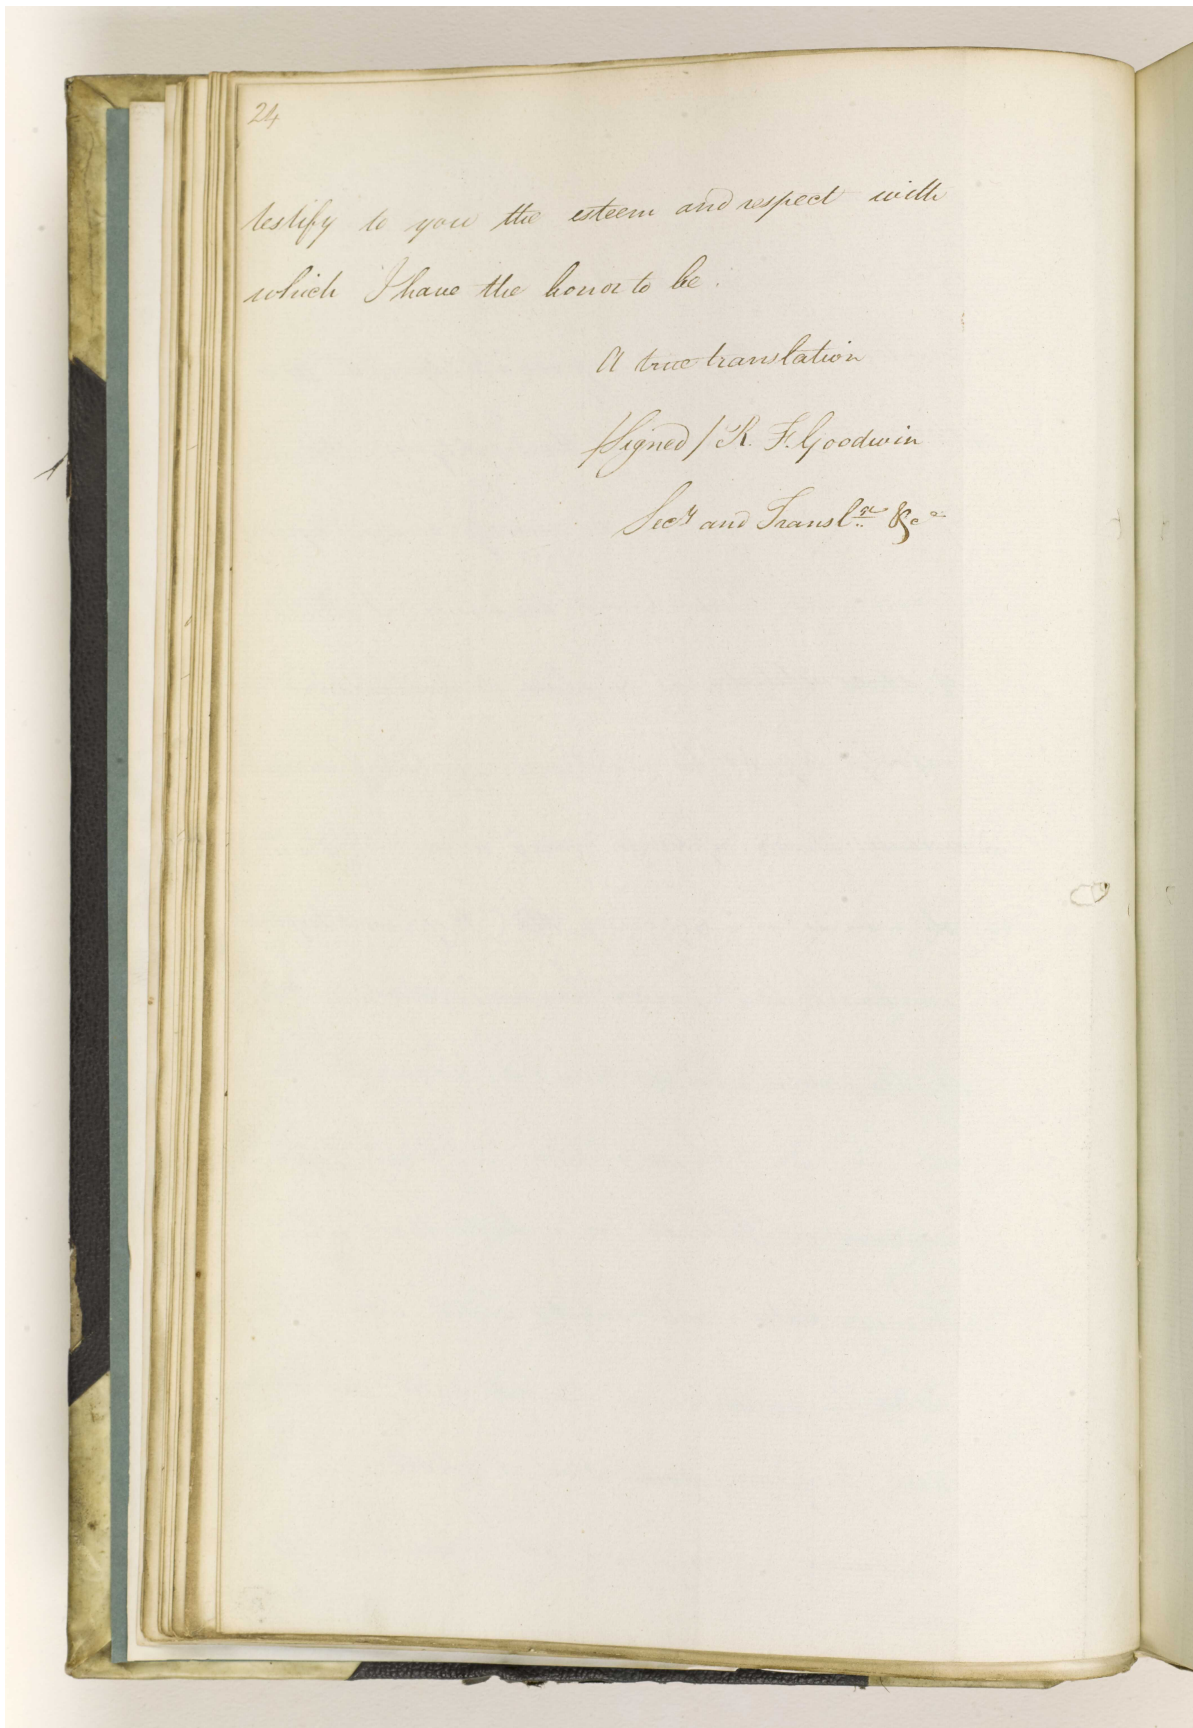 24
testify to you the esteem and respect with
which I have the honor to be.
A true translation
/Signed/ R. F. Goodwin
Secy and Translr &c